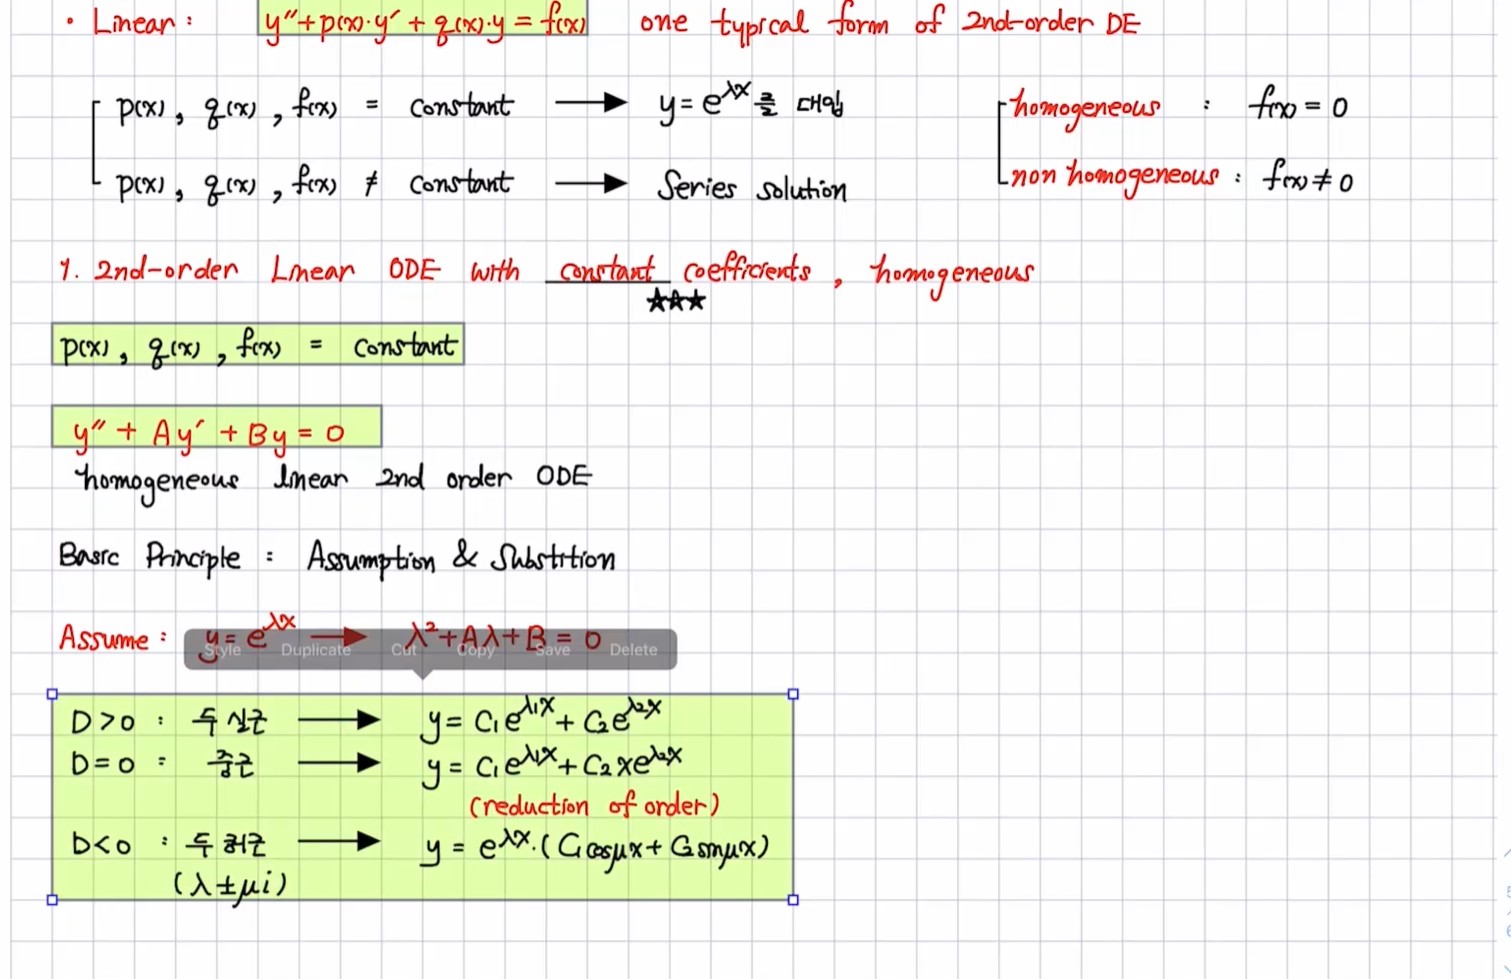 • Linear : y″+p(x)·y′ + q(x)·y = f(x) one typical form of 2nd-order DE
p(x), q(x), f(x) = constant → y = e^λx 를 대입
homogeneous : f(x) = 0
p(x), q(x), f(x) ≠ constant → Series solution
non homogeneous : f(x) ≠ 0
1. 2nd-order Linear ODE with constant coefficients, homogeneous
★★★
p(x), q(x), f(x) = constant
y″ + Ay′ + By = 0
homogeneous linear 2nd order ODE
Basic Principle : Assumption & Substition
Assume : y = e^λx → λ²+Aλ+B = 0
Style Duplicate Cut Copy Save Delete
D>0 : 두 실근 → y = C₁e^λ₁x + C₂e^λ₂x
D=0 : 중근 → y = C₁e^λ₁x + C₂xe^λ₂x
(reduction of order)
D<0 : 두 허근 → y = e^λx·(C₁cosμx + C₂sinμx)
(λ±μi)